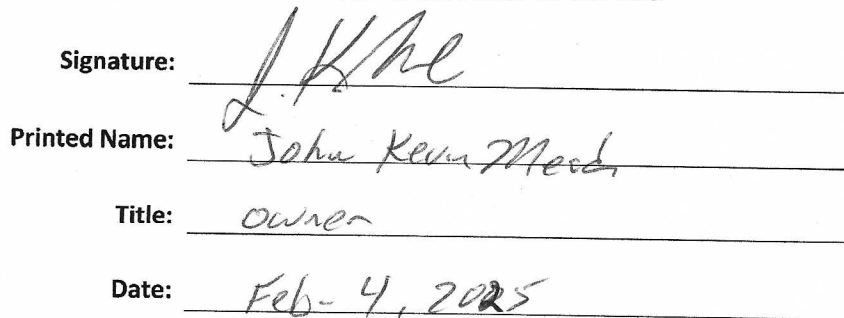 Signature: J. K
Printed Name: John Kevin Mead
Title: owner
Date: Feb- 4, 2025